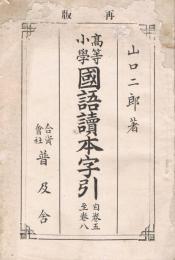 再版
山口二郎著
高等小學國語讀本字引
自卷五至卷八
合資會社普及舍